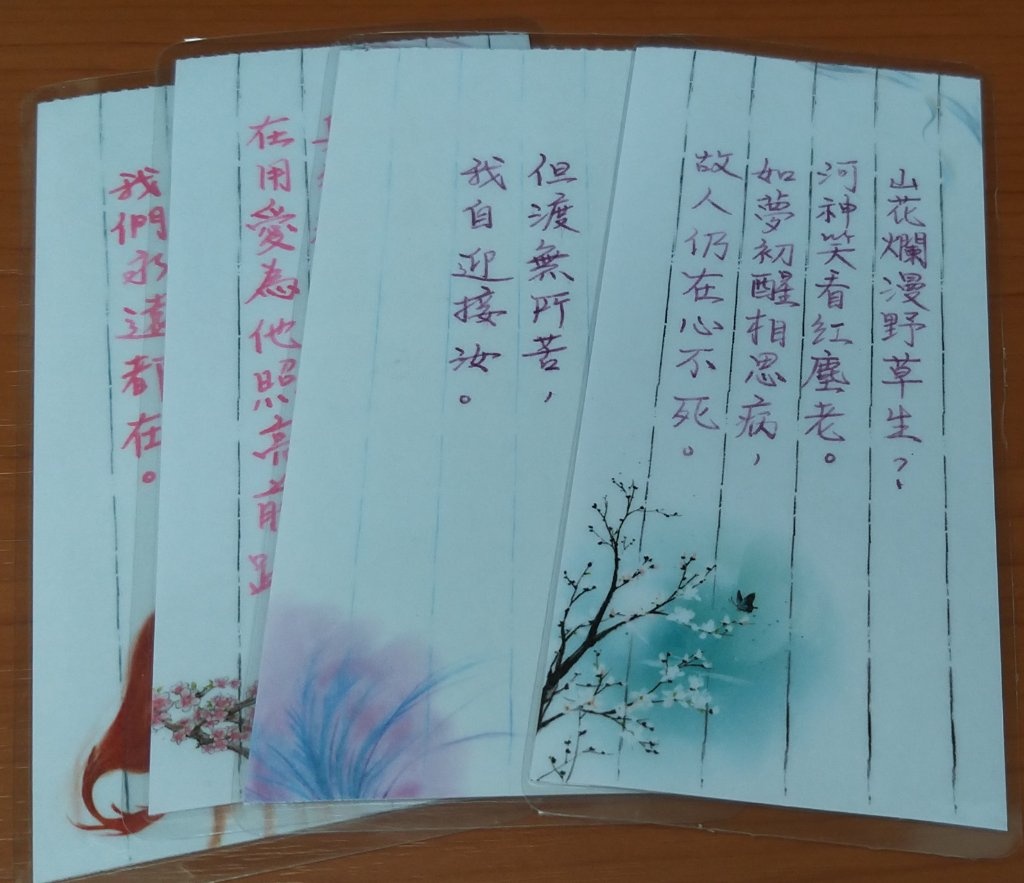 山花爛漫野草生?
河神笑看紅塵老。
如夢初醒相思病,
故人仍在心不死。
但渡無所苦,
我自迎接汝。
在用愛為他照亮前
我們永遠都在。